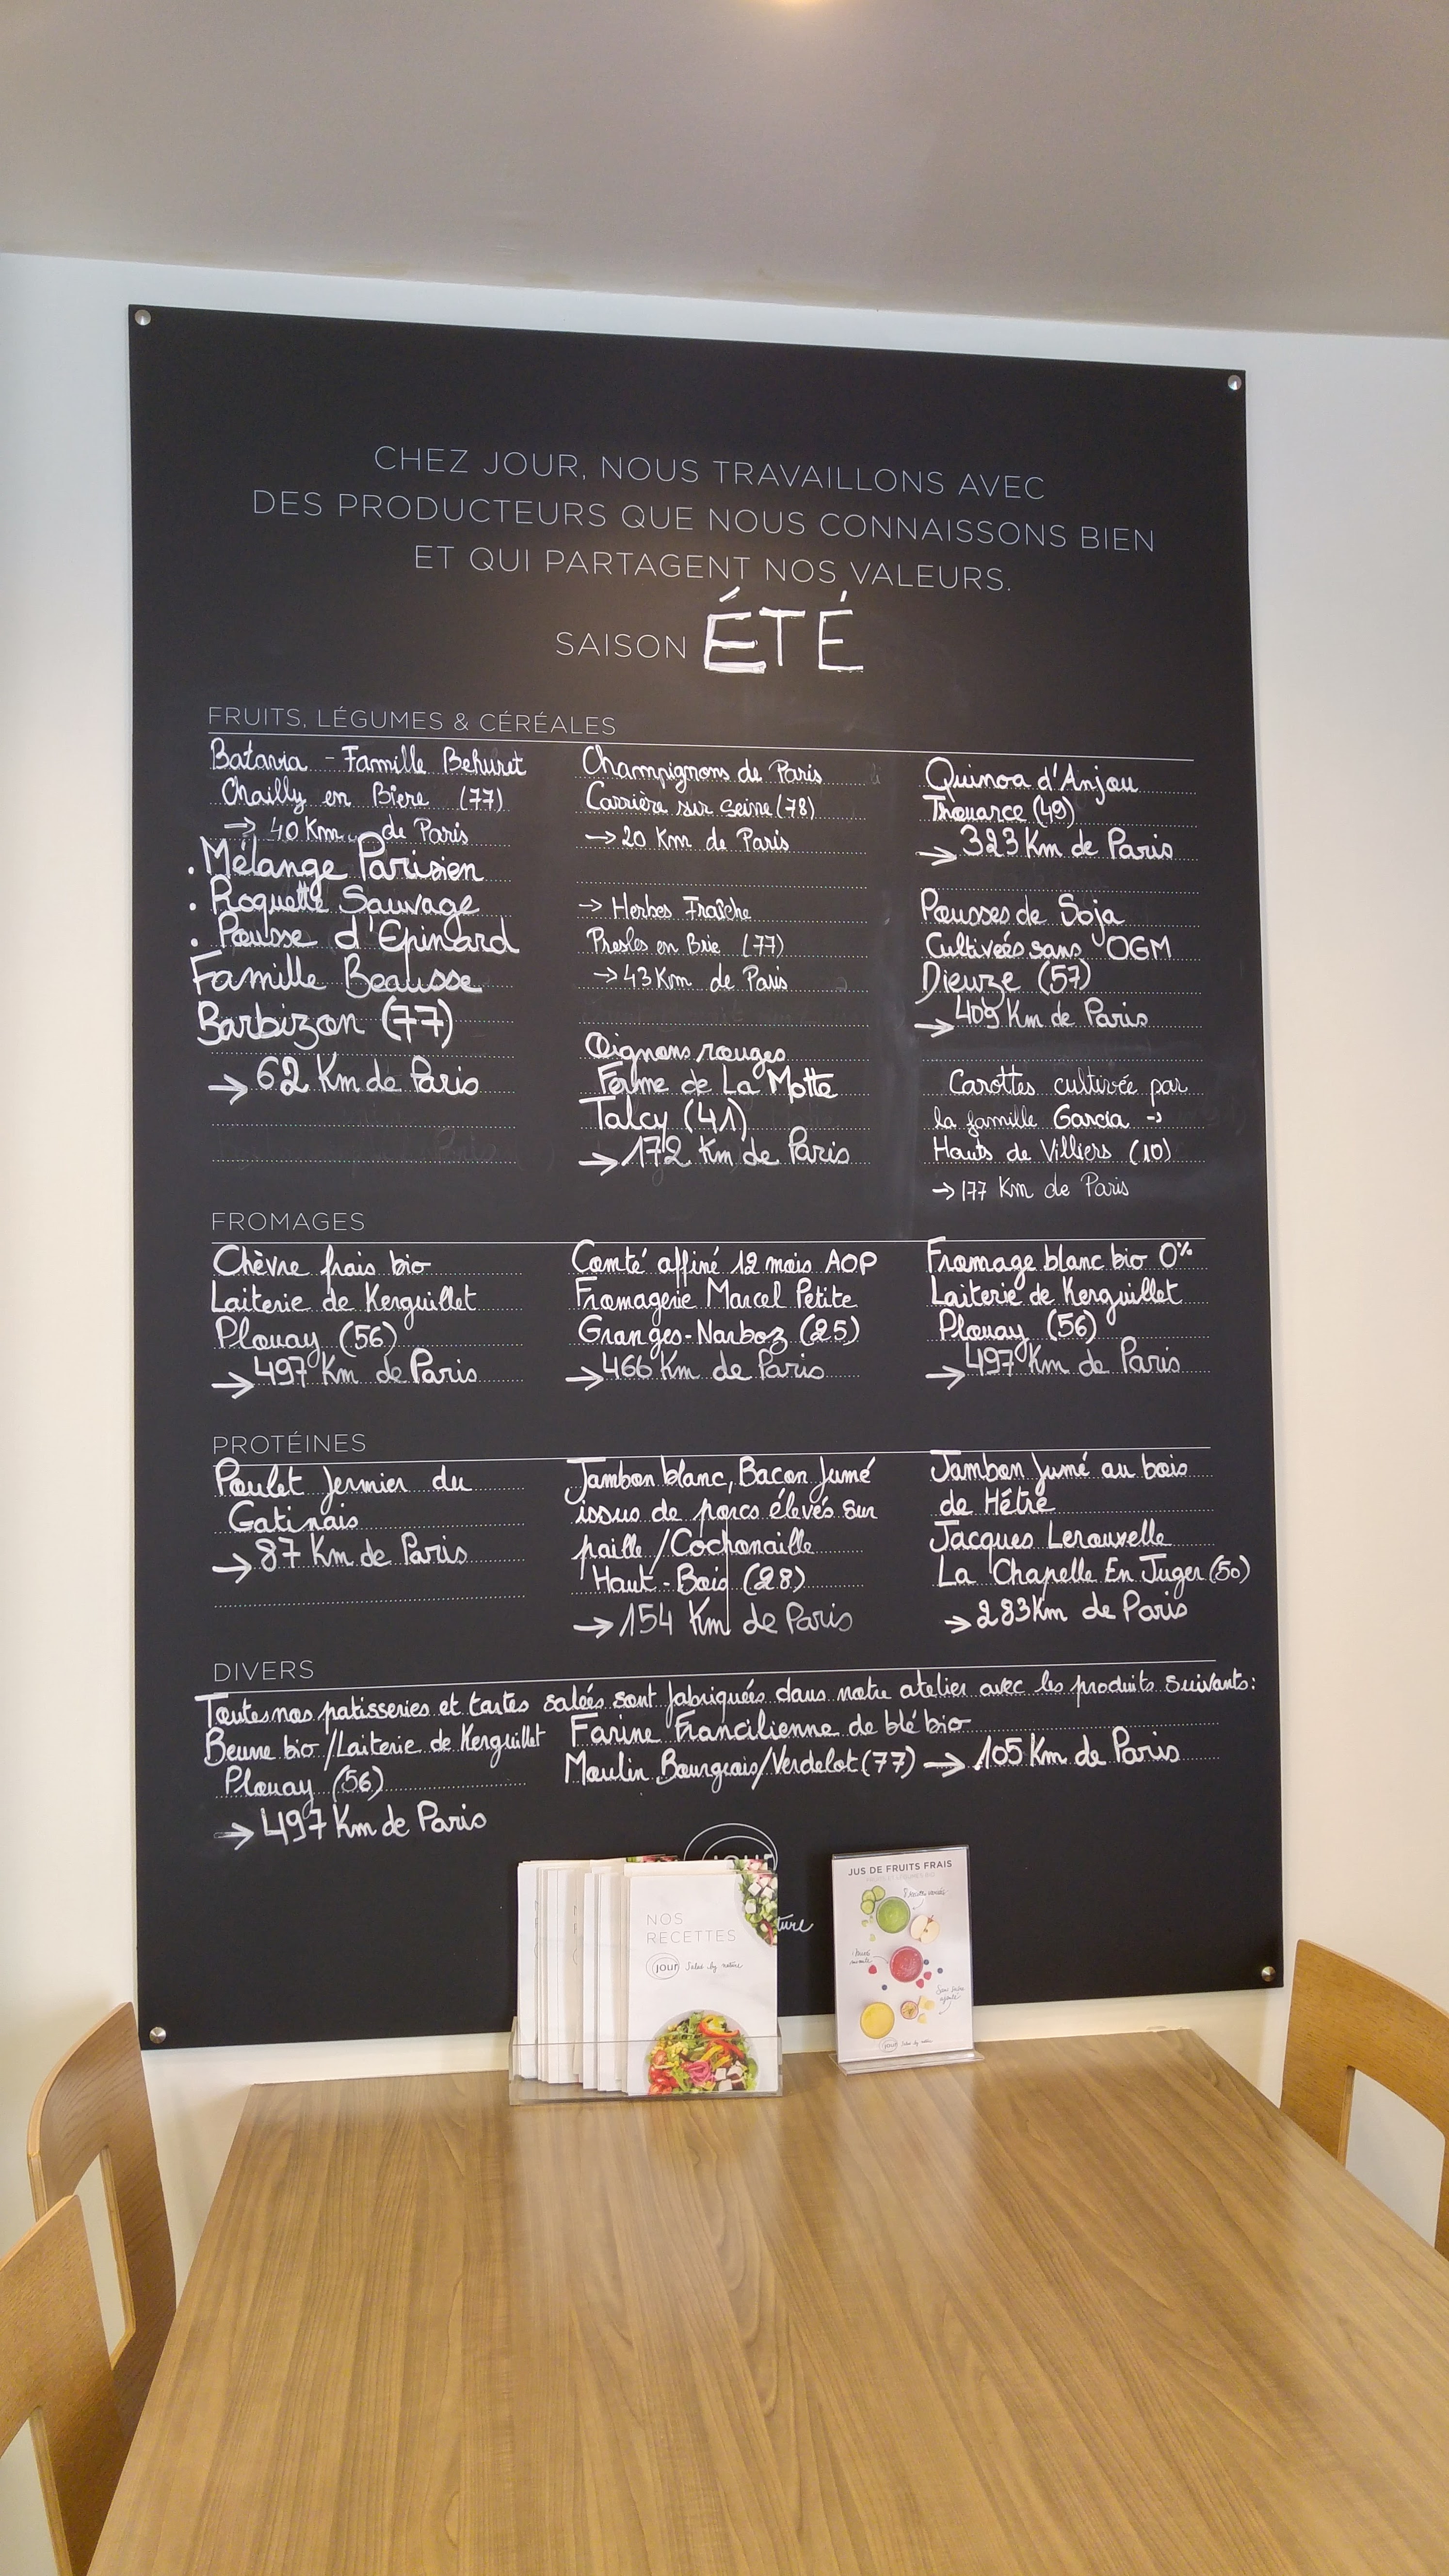 CHEZ JOUR, NOUS TRAVAILLONS AVEC
DES PRODUCTEURS QUE NOUS CONNAISSONS BIEN
ET QUI PARTAGENT NOS VALEURS.
SAISON ÉTÉ
FRUITS, LÉGUMES & CÉRÉALES
Batavia - Famille Behuret
Chailly en Biere (77)
→ 40 Km de Paris
. Mélange Parisien
. Roquette Sauvage
. Pousse d'Epinard
Famille Beausse
Barbizon (77)
→ 62 Km de Paris
Champignons de Paris
Carrière sur Seine (78)
→ 20 Km de Paris
→ Herbes Fraîche
Presles en Brie (77)
→ 43 Km de Paris
Oignons rouges
Ferme de La Motte
Talcy (41)
→ 172 Km de Paris
Quinoa d'Anjou
Thouarce (49)
→ 323 Km de Paris
Pousses de Soja
Cultivées sans OGM
Dieuze (57)
→ 409 Km de Paris
Carottes cultivée par
la famille Garcia →
Hauts de Villiers (10)
→ 177 Km de Paris
FROMAGES
Chèvre frais bio
Laiterie de Kerguillet
Plouay (56)
→ 497 Km de Paris
Comté affiné 12 mois AOP
Fromagerie Marcel Petite
Granges-Narboz (25)
→ 466 Km de Paris
Fromage blanc bio 0%
Laiterie de Kerguillet
Plouay (56)
→ 497 Km de Paris
PROTÉINES
Poulet fermier du
Gatinais
→ 87 Km de Paris
Jambon blanc, Bacon fumé
issus de porcs élevés sur
paille / Cochonaille
Haut-Bois (28)
→ 154 Km de Paris
Jambon fumé au bois
de Hétre
Jacques Lerouxelle
La Chapelle En Juger (50)
→ 283 Km de Paris
DIVERS
Toutes nos patisseries et tartes salées sont fabriquées dans notre atelier avec les produits suivants:
Beurre bio / Laiterie de Kerguillet
Plouay (56)
→ 497 Km de Paris
Farine Francilienne de blé bio
Moulin Bourgeois / Verdelot (77) → 105 Km de Paris
NOS
RECETTES
jour Salad by nature
JUS DE FRUITS FRAIS
jour Salad by nature